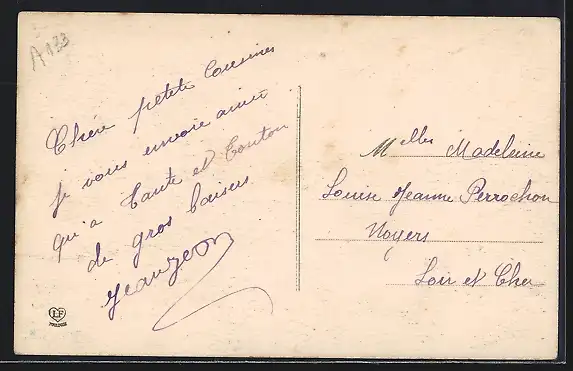 A 133
Chère petite Cousines
je vous envoie ainsi
qu'a Tante et Tonton
de gros baisers
Jean
Melles Madeleine
Louise Jeanne Perrochon
Noyers
Loir et Cher
LF
TOULOUSE